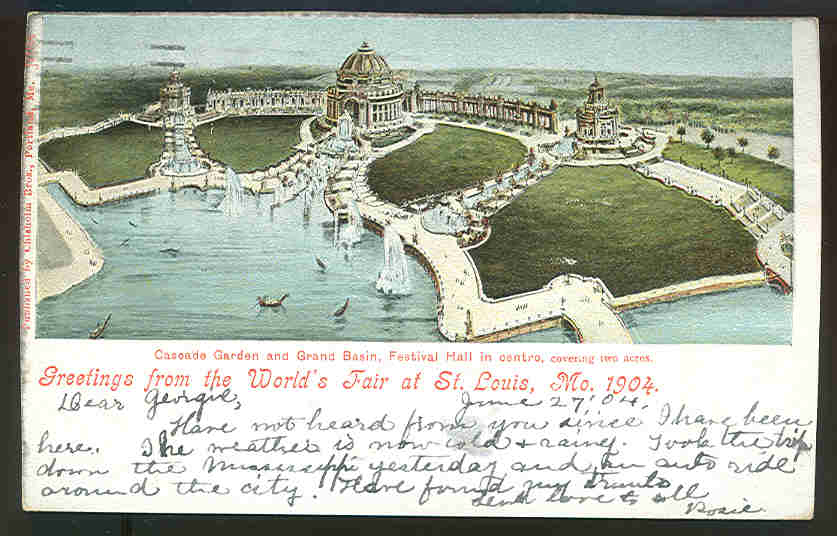 Published by Chisholm Bros., Portland, Me.
Cascade Garden and Grand Basin, Festival Hall in centre, covering two acres.
Greetings from the World's Fair at St. Louis, Mo. 1904.
Dear Georgie, June 27 '04.
Have not heard from you since I have been
here. The weather is now cold & rainy. Took the trip
down the Mississippi yesterday and an auto ride
around the city. Have found my trunks
love to all
Rosie